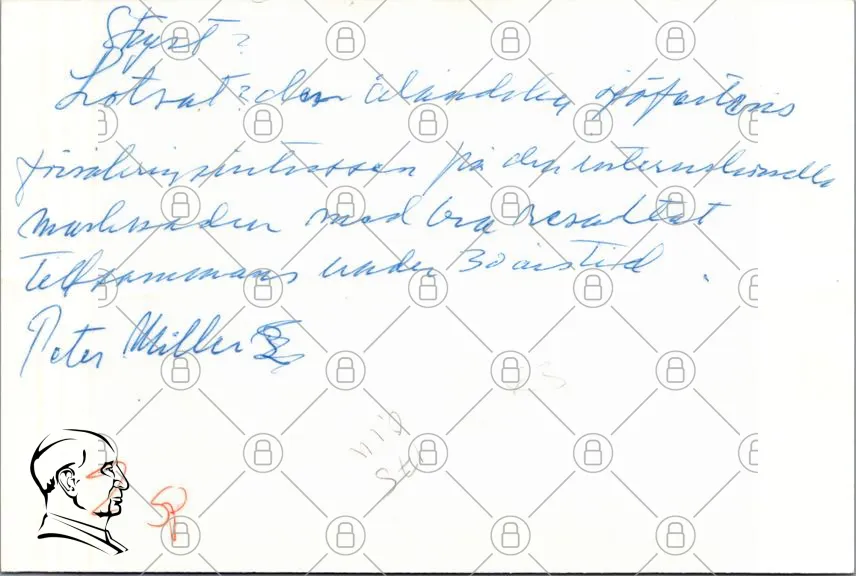 Styrt?
Lotsat? den åländska sjöfartens
försäkringsintressen på den internationella
marknaden med bra resultat
Tillsammans under 30 års tid.
Peter Müller